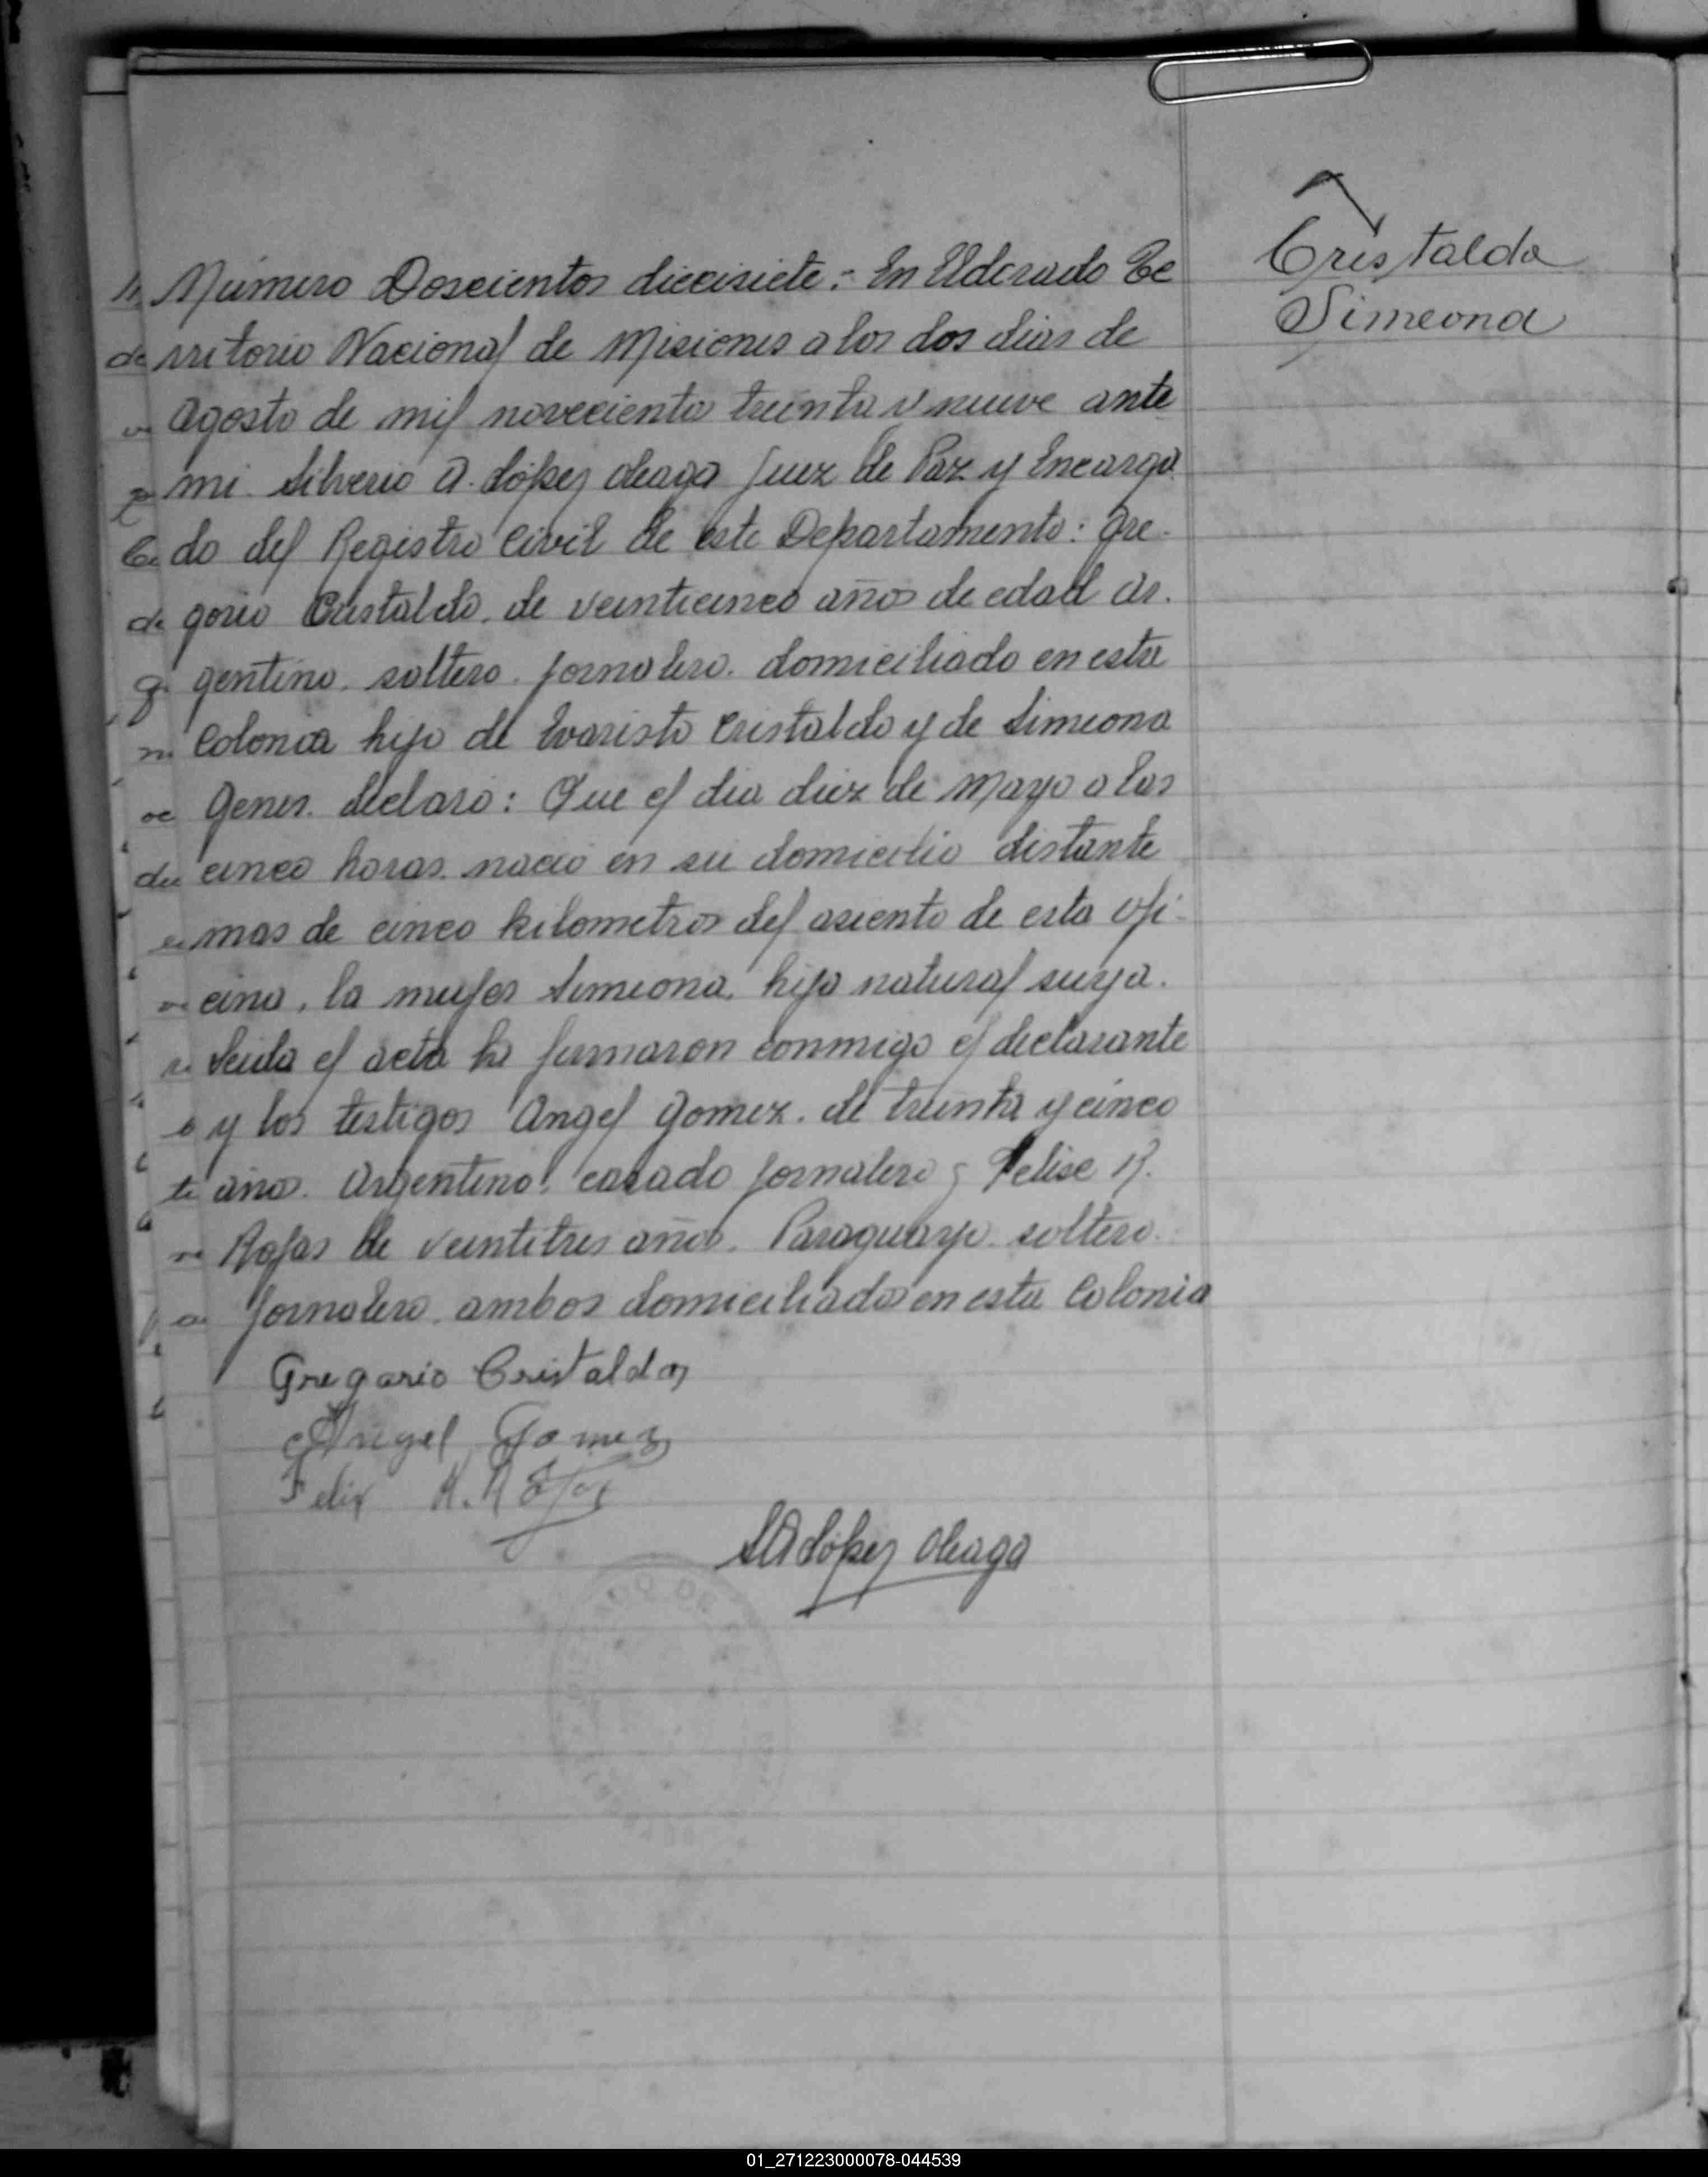 Cristaldo
Simeona
Número Doscientos diecisiete:- En Eldorado Te
rritorio Nacional de Misiones a los dos dias de
Agosto de mil novecientos treinta y nueve ante
mi Silverio A. López Oleaga Juez de Paz y Encarga
do del Registro Civil de este Departamento: Gre-
gorio Cristaldo, de veinticinco años de edad Ar-
gentino, soltero, jornalero, domiciliado en esta
Colonia hijo de Evaristo Cristaldo y de Simeona
Genes. declaró: Que el dia diez de Mayo a las
cinco horas, nació en su domicilio distante
mas de cinco kilometros del asiento de esta ofi-
cina, la mujer Simeona, hija natural suya.
Leida el acta la firmaron conmigo el declarante
y los testigos Angel Gomez, de treinta y cinco
años. Argentino, casado jornalero y Felise R.
Rojas de veintitres años. Paraguayo soltero
jornalero, ambos domiciliados en esta Colonia
Gregorio Cristaldo
Angel Gomez
Felix R. Rojas
SA López Oleaga
01_271223000078-044539